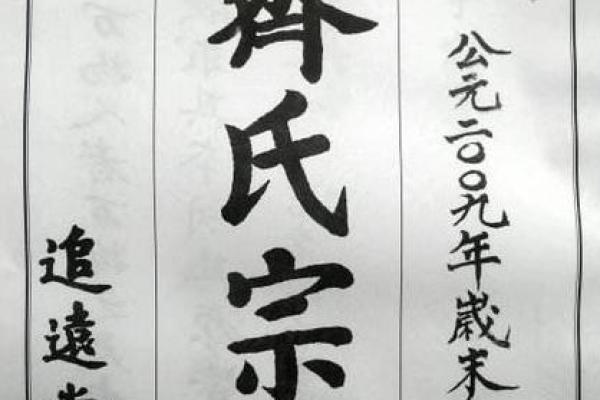 公元二〇〇九年歲末
齊氏宗
追遠